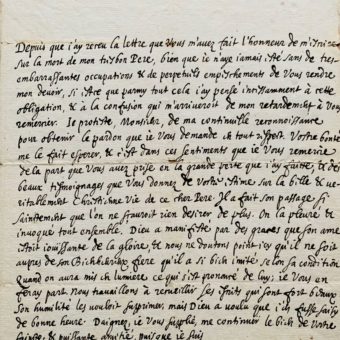 Depuis que j'ay receu la lettre que Vous m'avez fait l'honneur de m'escrire
sur la mort de mon tresbon Pere, bien que je n'aye jamais esté sans de tres-
embarrassantes occupations & de perpetuels empeschements de Vous rendre
mon devoir, si est ce que parmy tout cela j'ay pensé incessamment à cette
obligation, & à la confusion qui m'arriveroit de mon retardement à Vous
remercier. Je proteste, Monsieur, de ma continuelle reconnoissance
pour obtenir le pardon que je Vous demande en tout respect. Vostre bonté
me le fait esperer, & c'est dans ces sentiments que je Vous remercie
de la part que Vous avez prise en la grande perte que j'ay faitte, & des
beaux tesmoignages que Vous donnez de Vostre estime sur la belle & ve-
ritablement Chrestienne Vie de ce cher Pere. Il a fait son passage si
Saintement que l'on ne sçauroit rien desirer de plus. On la pleure &
invoque tout ensemble. Dieu a manifesté par des graces que son ame
estoit jouissante de la gloire, & nous ne doutons point icy qu'il ne soit
aupres de son Bienheureux frere qu'il a si bien imité selon sa condition
Quand on aura mis en lumiere ce qui s'est prononcé de luy, je Vous en
feray part. Nous travaillons à recueillir ses escrits qui sont fort beaux
Son humilité les vouloit supprimer, mais Dieu a voulu que j'en fusse saisy
de bonne heure. Daignez, je Vous supplie, me continuer le bien de Vostre
sainte, & puissante amitié, puisque je suis